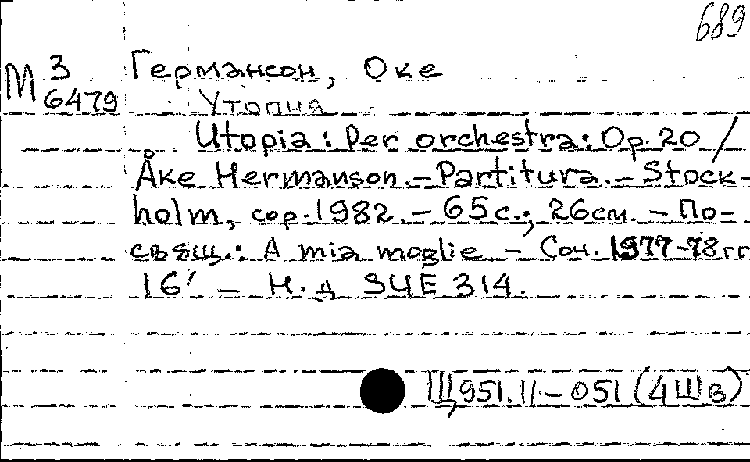 689
М 3 Германсон, Оке
6479 Утопия
Utopia: Per orchestra: Op. 20 /
Åke Hermanson. - Partitura. - Stock-
holm, cop. 1982. - 65 с.; 26 см. - По-
свящ.: A mia moglie - Соч. 1977-78 гг
16' - Н. д SUE 314.
Щ951.11-051 (4Шв)